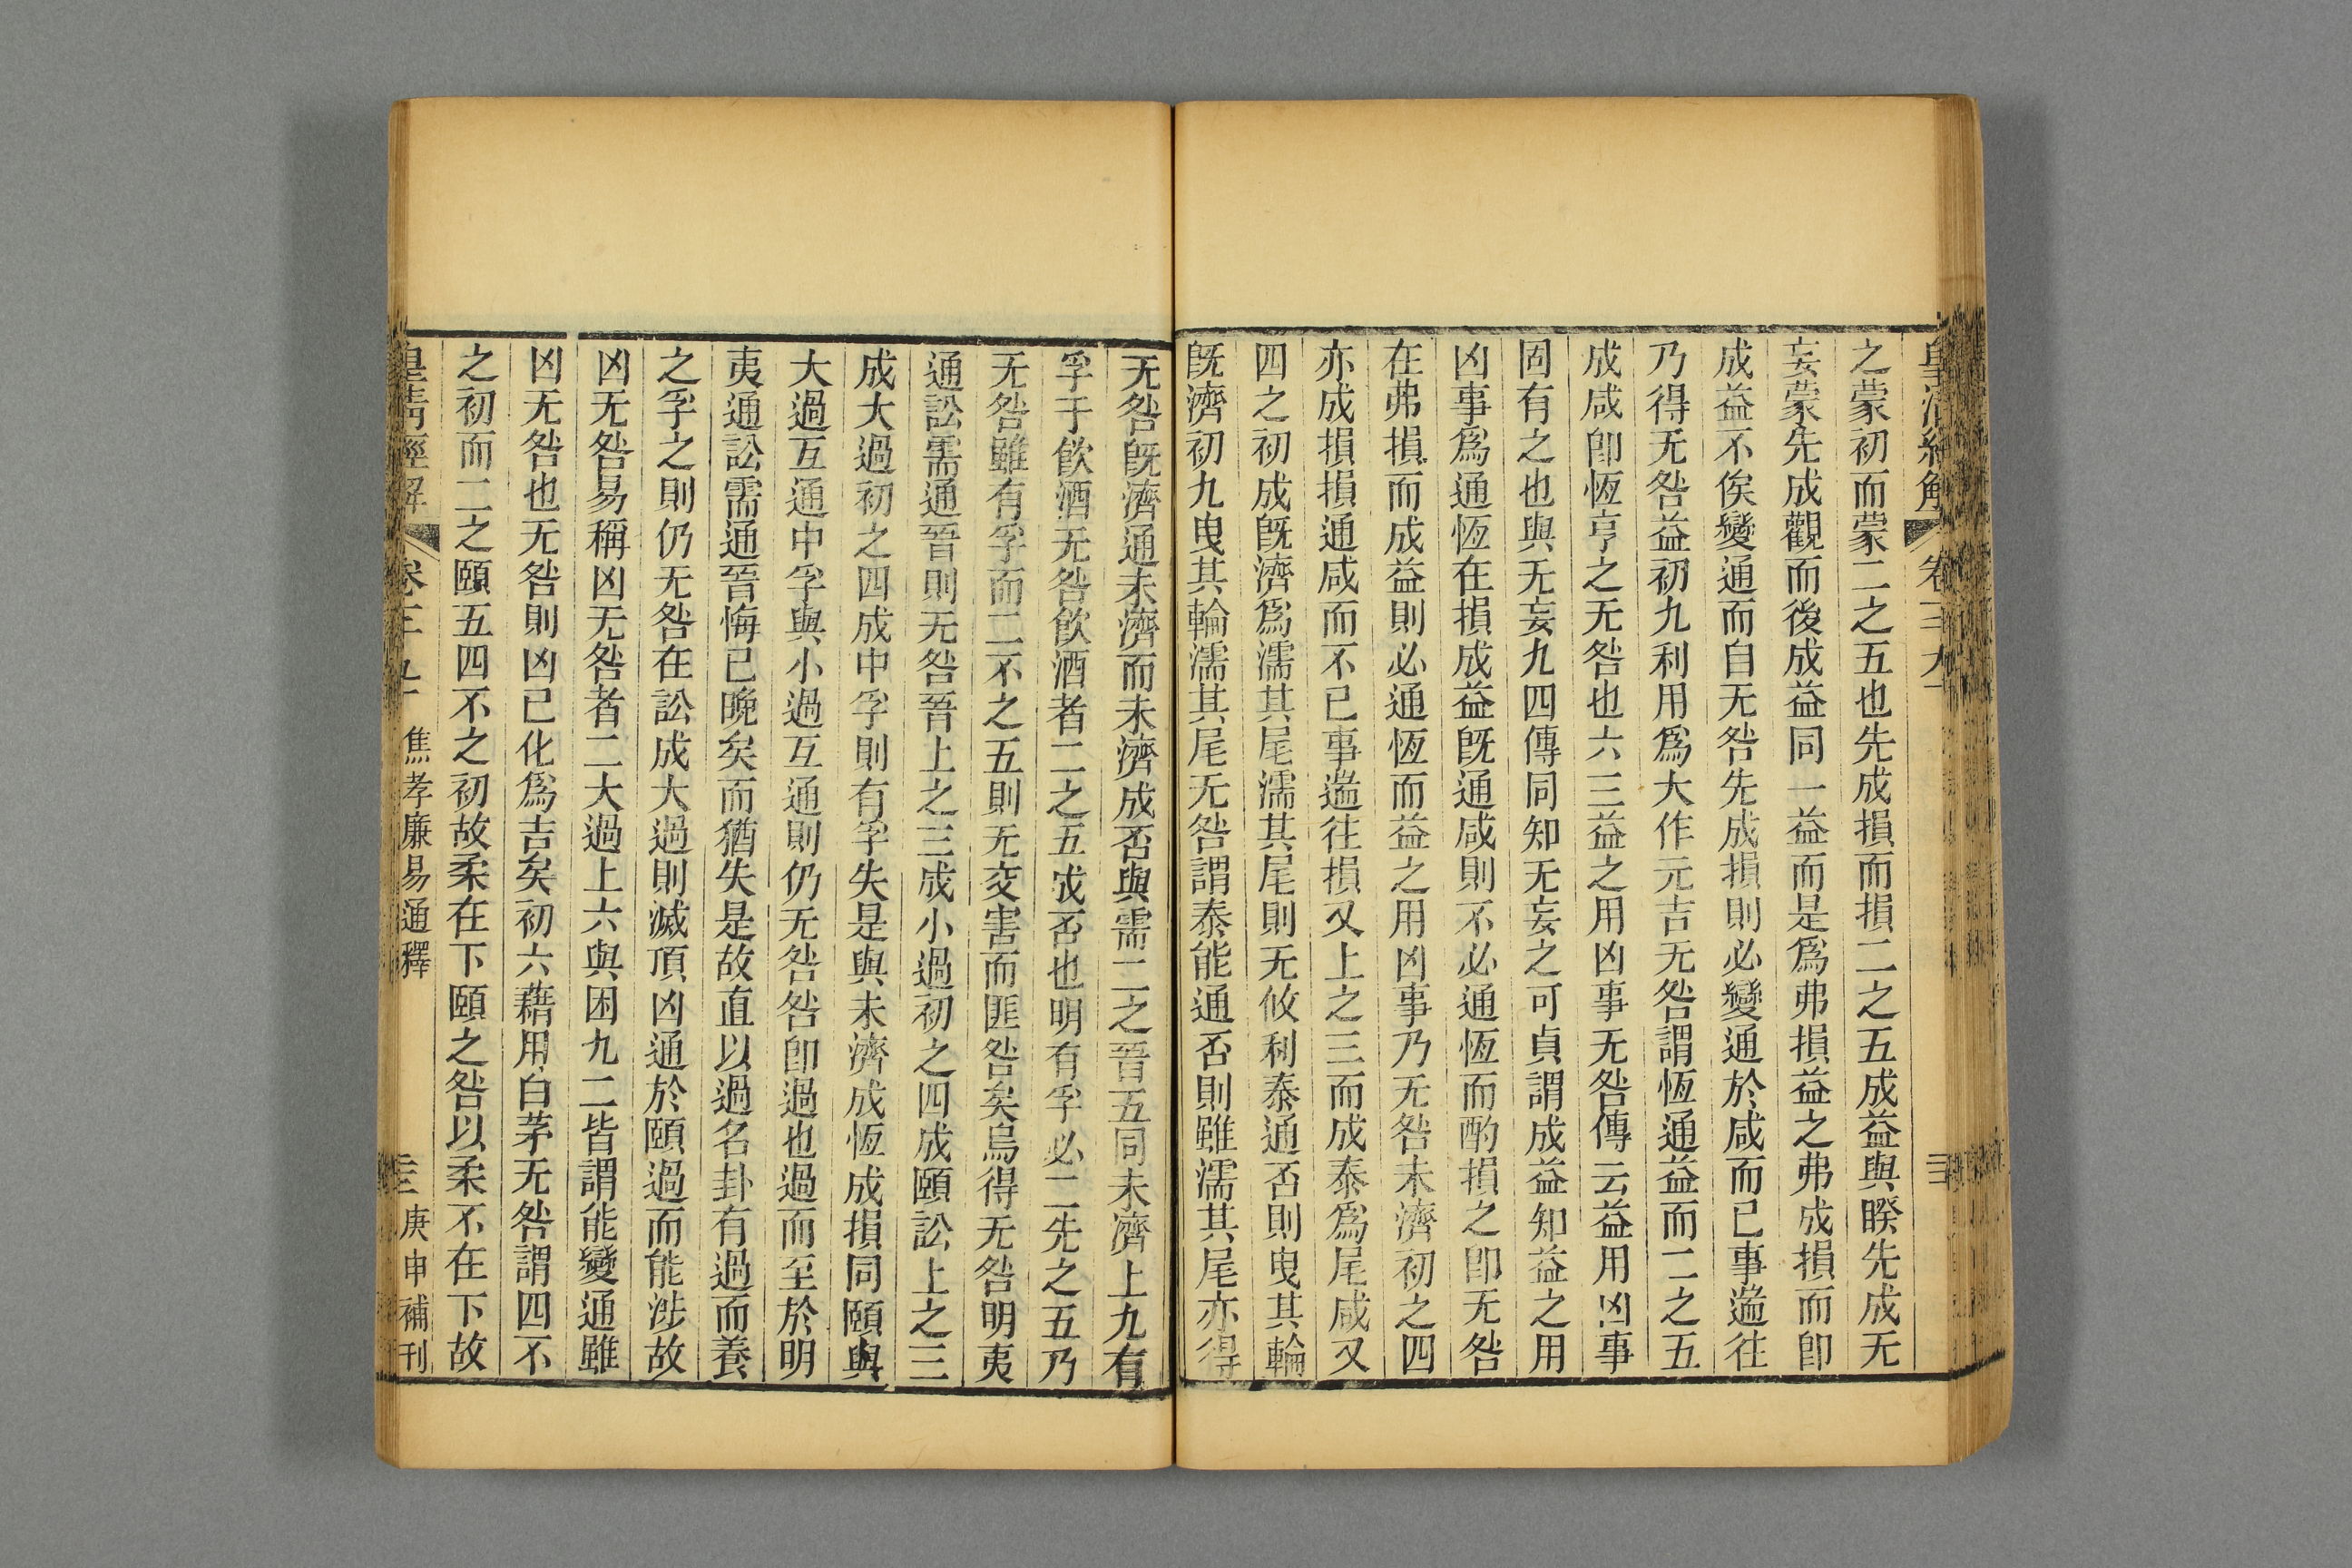 之蒙初而蒙二之五也先成損而損二之五成益與睽先成无
妄蒙先成觀而後成益同一益而是爲弗損益之弗成損而卽
成益不俟變通而自无咎先成損則必變通於咸而已事遄往
乃得无咎益初九利用爲大作元吉无咎謂恆通益而二之五
成咸卽恆亨之无咎也六三益之用凶事无咎傳云益用凶事
固有之也與无妄九四傳同知无妄之可貞謂成益知益之用
凶事爲通恆在損成益旣通咸則不必通恆而酌損之卽无咎
在弗損而成益則必通恆而益之用凶事乃无咎未濟初之四
亦成損損通咸而不已事遄往損又上之三而成泰爲尾咸又
四之初成旣濟爲濡其尾濡其尾則无攸利泰通否則曳其輪
旣濟初九曳其輪濡其尾无咎謂泰能通否則雖濡其尾亦得
无咎旣濟通未濟而未濟成否與需二之晉五同未濟上九有
孚于飮酒无咎飮酒者二之五成否也明有孚必二先之五乃
无咎雖有孚而二不之五則无交害而匪咎矣烏得无咎明夷
通訟需通晉則无咎晉上之三成小過初之四成頤訟上之三
成大過初之四成中孚則有孚失是與未濟成恆成損同頤與
大過互通中孚與小過互通則仍无咎咎卽過也過而至於明
夷通訟需通晉悔已晚矣而猶失是故直以過名卦有過而養
之孚之則仍无咎在訟成大過則滅頂凶通於頤過而能涉故
凶无咎易稱凶无咎者二大過上六與困九二皆謂能變通雖
凶无咎也无咎則凶已化爲吉矣初六藉用白茅无咎謂四不
之初而二之頤五四不之初故柔在下頤之咎以柔不在下故
皇清經解 卷三九 焦孝廉易通釋 庚申補刊